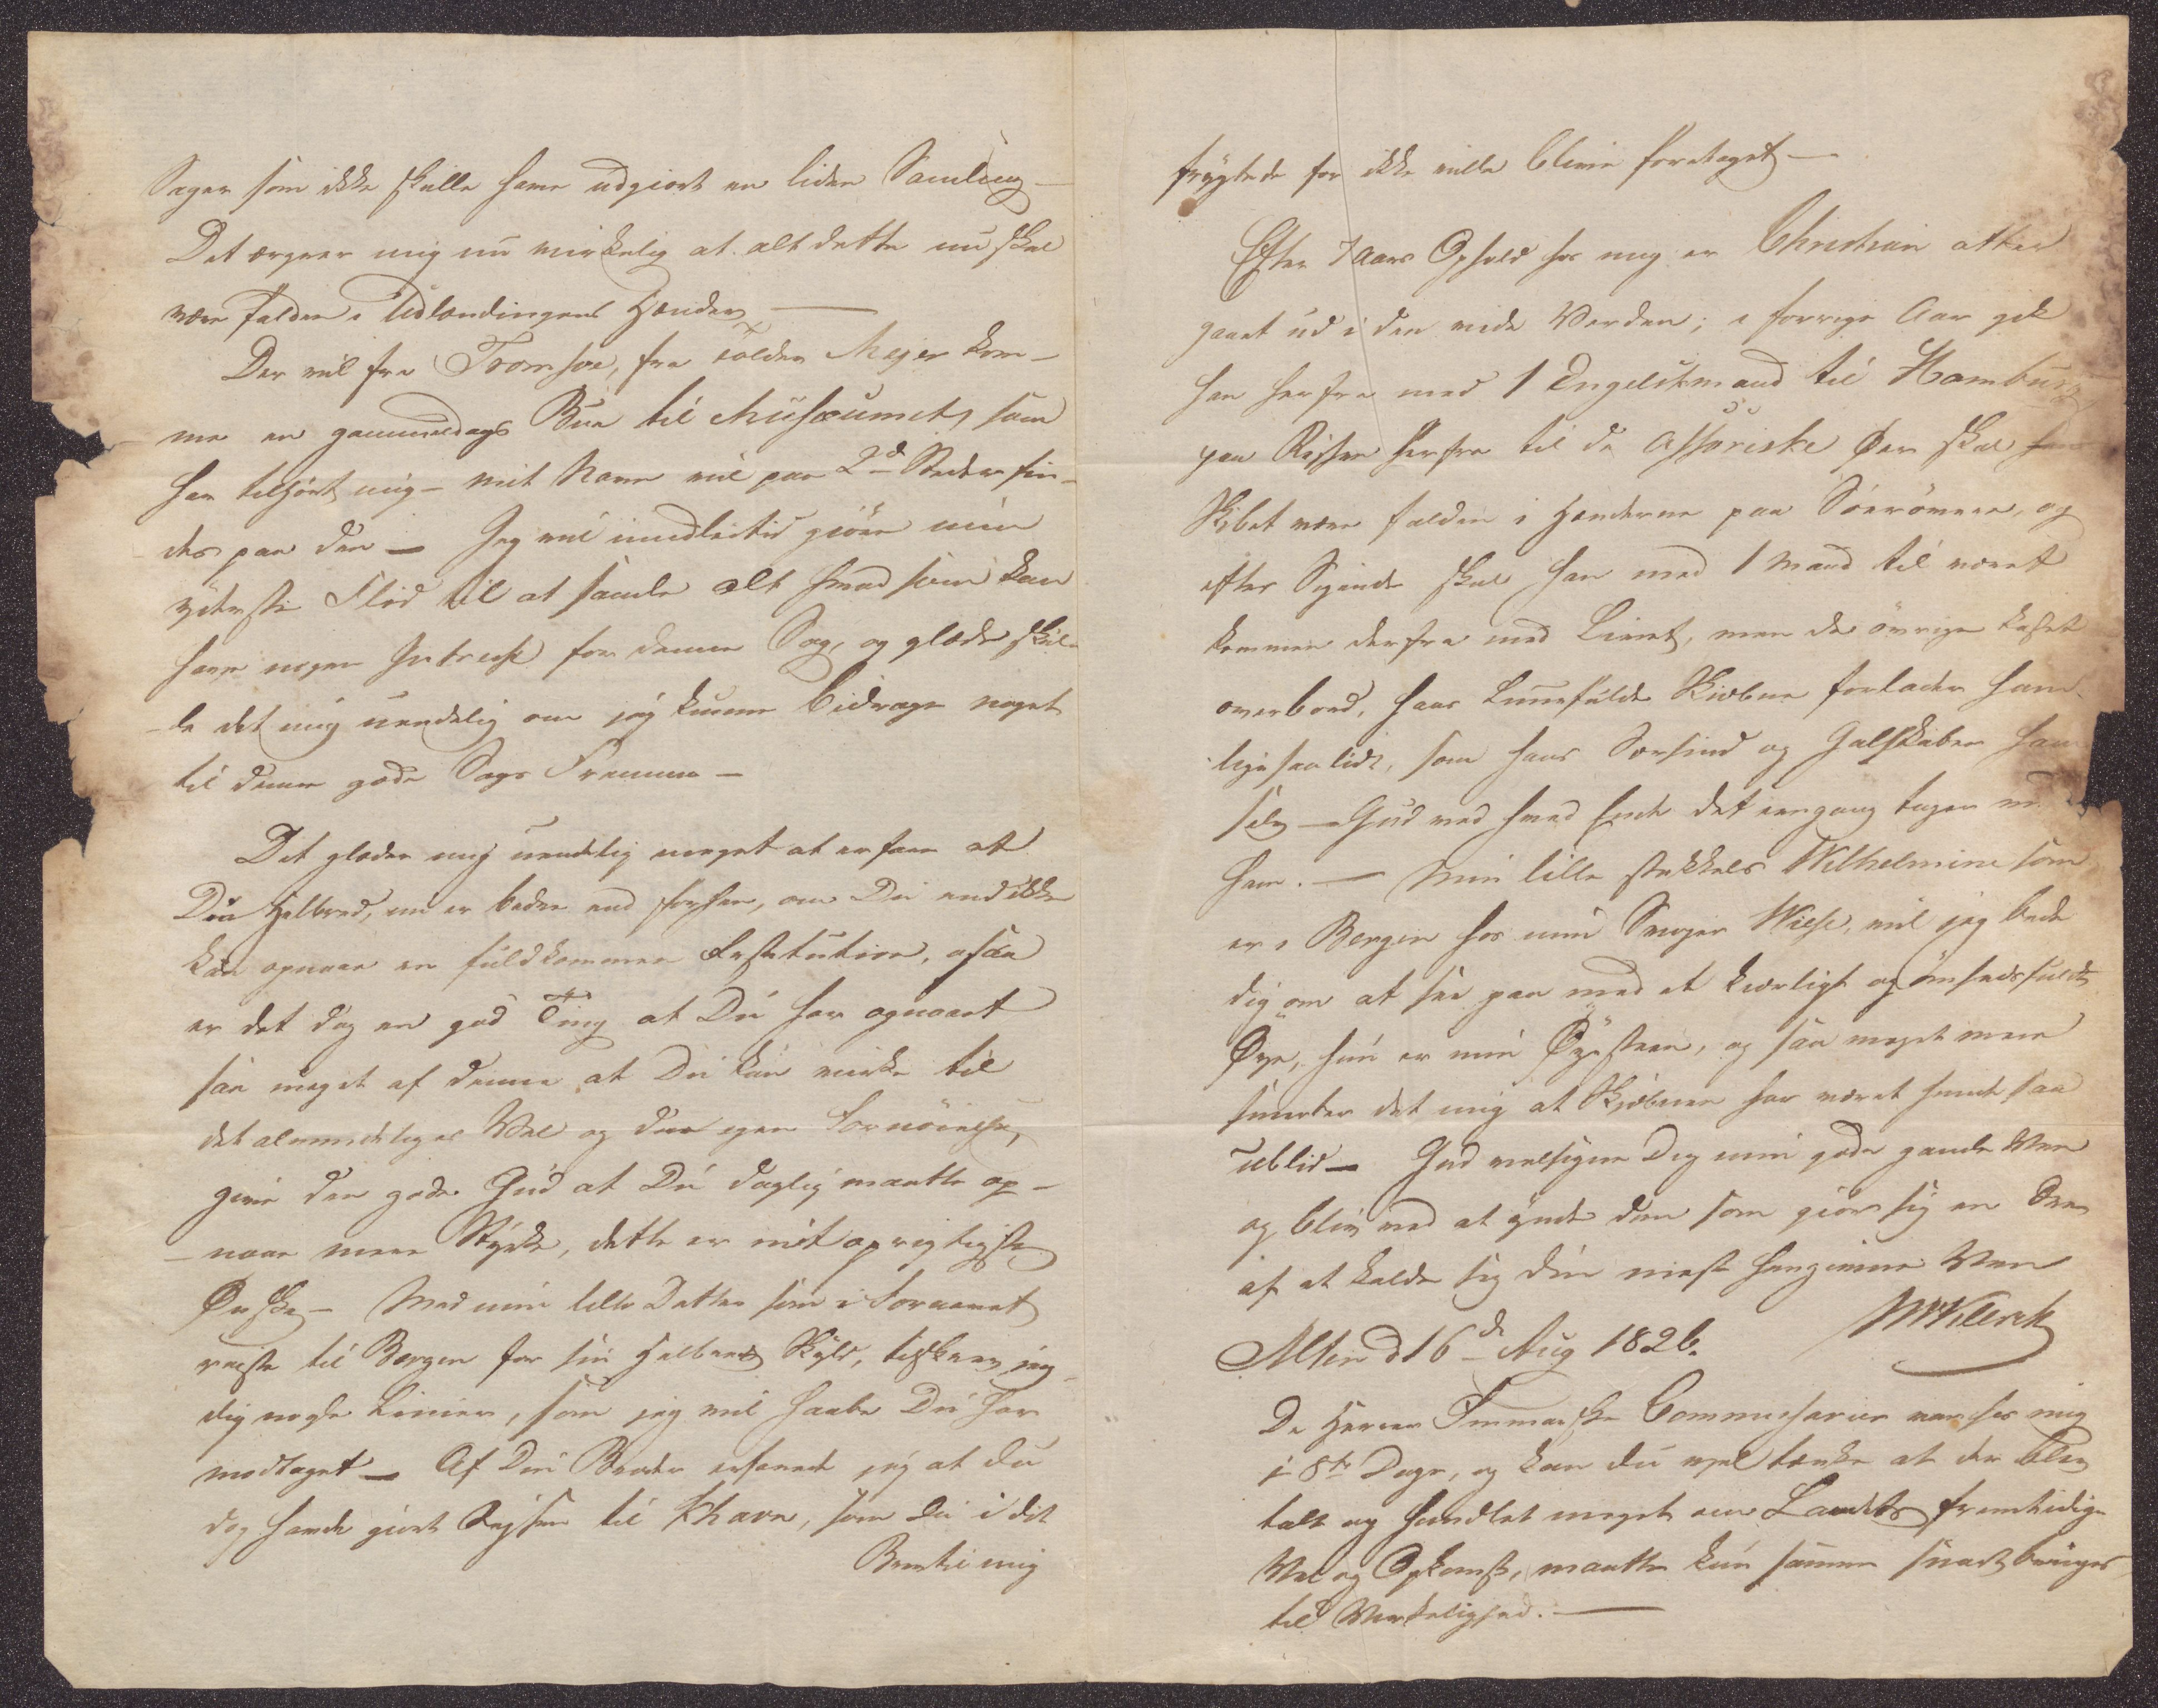 Sager som ikke skulle have udgiort en liden Samling —
Det ærgrer mig nu virkelig at alt dette nu skal
være falden i Udlændingens Hænder —
Der vil fra Tromsøe, fra Tolder Mejer kom-
me en gammeldags Bue til Musæumet, som
har tilhört mig — mit Navn vil paa 2de Steder fin-
des paa den — Jeg vil imidlertid giöre min
yderste Flid til at samle alt hvad som kan
have nogen Intresse for denne Sag, og glæde skul-
le det mig uendelig om jeg kunne bidrage noget
til denne gode Sags Fremme —
Det glæder mig uendelig meget at erfare at
Din Helbred, nu er bedre end forhen, om Du end ikke
kan opnaae en fuldkommen Restitution, saa
er det dog en god Ting at Du har opnaaet
saa meget af denne at Du kan virke til
det almindelige Vel og din egen Fornöielse,
give den gode Gud at Du daglig maatte op-
naae mere Styrke, dette er mit oprigtigste
Ønske — Med min lille Datter som i Foraaret
reiste til Bergen for sin Helbreds Skyld, tilskrev jeg
dig nogle Linier, som jeg vil haabe Du har
modtaget — Af Din Broder erfarede jeg at du
dog havde giort Reisen til Khavn, som Du i dit
Brev til mig
frygtede for ikke ville blive foretaget —
Efter 7 Aars Ophold hos mig er Christian atter
gaaet ud i den vide Verden; i forrige Aar gik
han herfra med 1 Engelskmand til Hamburg
paa Reisen herfra til de Assoriske Øer skal
Skibet være falden i Hænderne paa Söerövere, og
efter Sigende skal han med 1 Mand til været
kommen derfra med Livet, men de övrige kastet
overbord. hans Lunefulde Skiebne forlader ham
ligesaalidt, som hans Særsind og Galskaber ham
selv — Gud ved hvad Ende det eengang tager
ham. — Min lille stakkels Wilhelmine som
er i Bergen hos min Svoger Wiese, vil jeg bede
dig om at see paa med et kiærligt og ömhedsfuldt
Øye, hun er min Øyesteen, og saa meget mere
smerter det mig at Skjæbnen har været hende saa
ublid — Gud velsigne Dig min gode gamle Ven
og bliv ved at ynde den som giör sig en Ære
af at kalde sig din meest hengivne Ven
MWKlerck
Alten d 16de Aug 1826.
De Herrer Finmarkske Commissarier var hos mig
i 8te Dage, og kan du vel tænke at der blev
talt og handlet meget om Landets fremtidige
Vel og Opkomst, maatte kun samme snart bringes
til Virkelighed. —